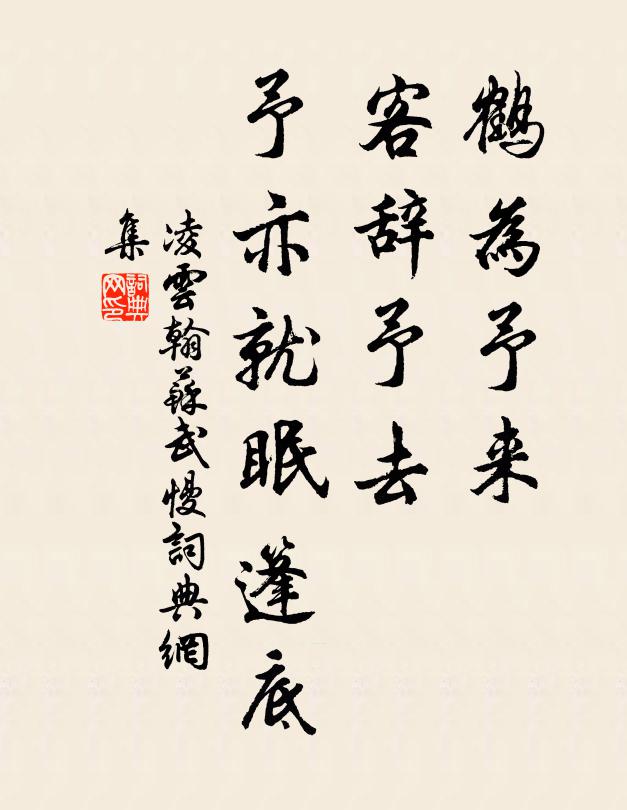 鶴為予来
客辞予去
予亦就眠篷底
凌雲翰蘇武慢詞典網
集
詞典网印